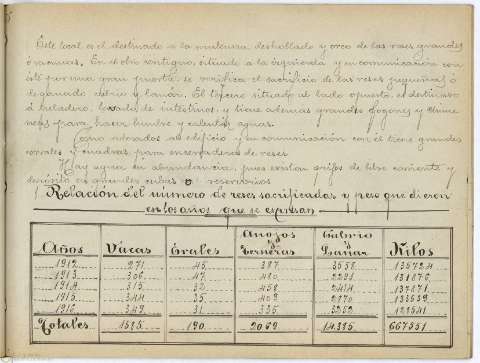 Este local es el destinado a la matanza, deshollado y oreo de las reses grandes
ó vacunas. En el otro contiguo, situado a la izquierda y en comunicación con
éste por una gran puerta, se verifica el sacrificio de las reses pequeñas ó
de ganado cabrío y lanar. El tercero situado al lado opuesto es destinado
á huladero, lavado de intestinos y tiene además grandes fogones y chime
neas para hacer lumbre y calentar aguas.
Como adosados al edificio y en comunicación con él tiene grandes
corrales y cuadras para encerraderos de reses.
Hay agua en abundancia, pues existen grifos de libre corriente y
depósito en grandes cubas ó reservorios
Relación del número de reses sacrificadas y peso que dieron
en los años que se expresan
Años Vacas Erales Anojos y Terneras Cabrio y Lanar Kilos
1912 271 45 387
1913 306 47
1914 315 32
1915 344 35
1916 349 31
Totales 1585 190 2069 14335 667351